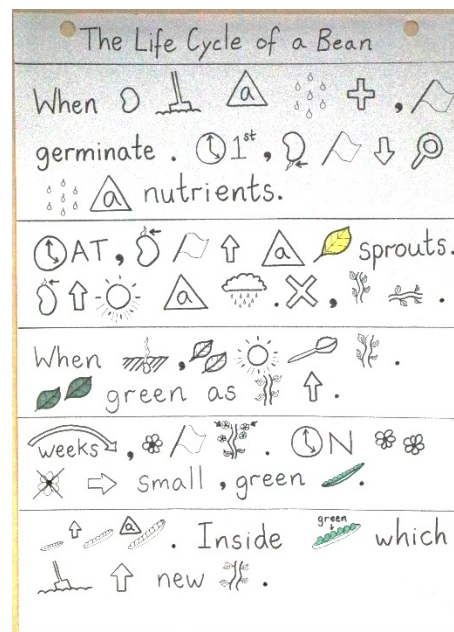 The Life Cycle of a Bean
When a ,
germinate . 1st ,
a nutrients.
AT , a sprouts.
a . , .
When , .
green as .
weeks , . N
small , green .
green
a . Inside which
new .